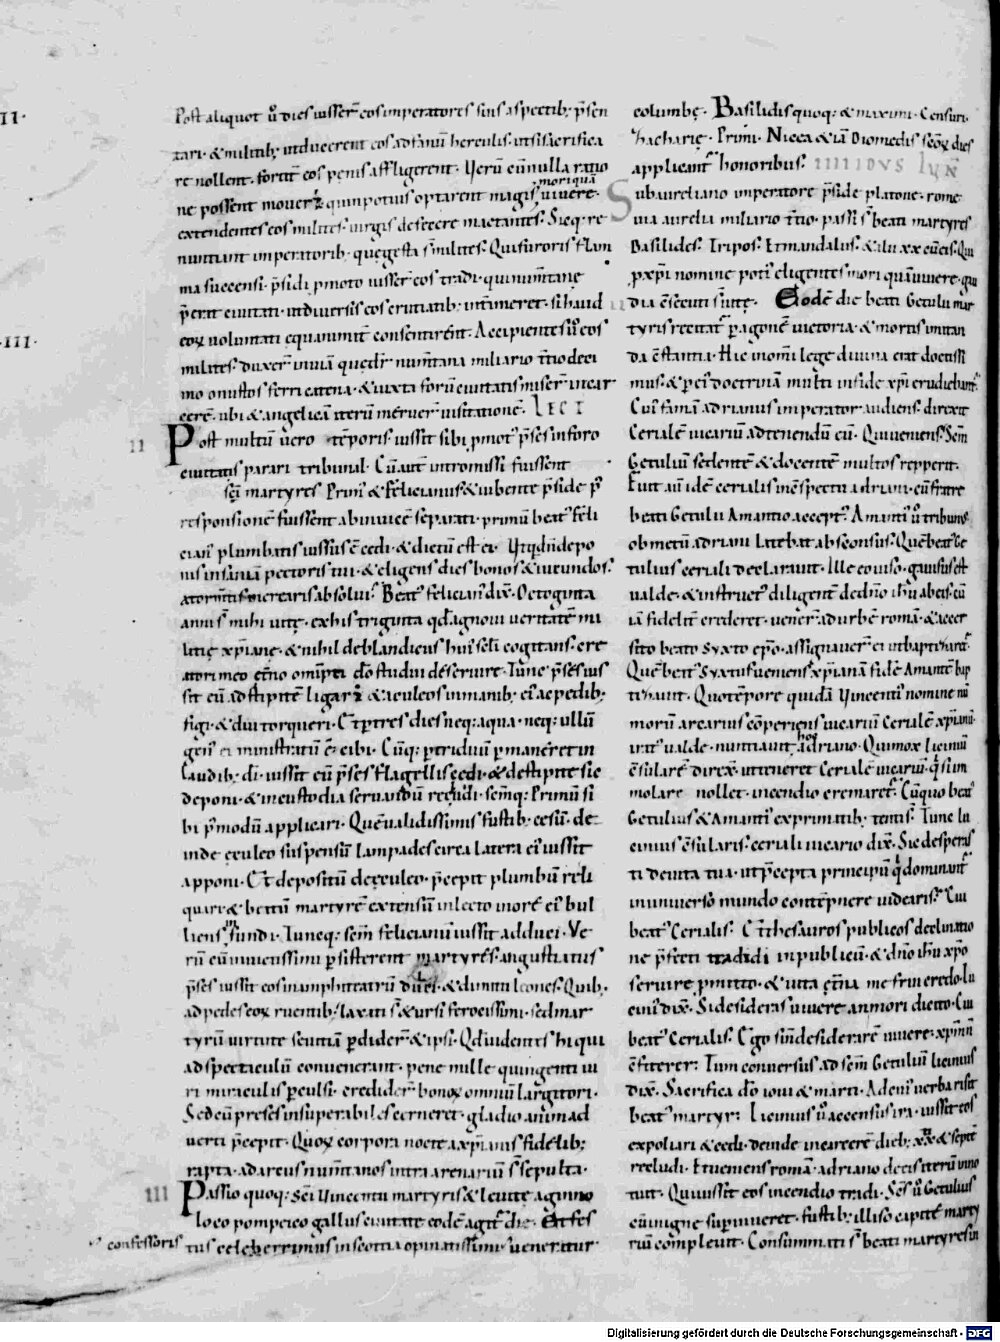 II.
Post aliquot ů dies iusser̄ eos imperatores suis aspectib; p̄sen
tari. & militib; ut ducerent eos ad fanū herculis. ut si sacrifica
re nollent. fortit̄ eos penis affligerent. Verū cū nulla ratio
ne possent mouer̄ı quin potius optarent magis mori quā uiuere.
extendentes eos milites. uirgis cesecere mactantes. Sicq; re
nuntiant imperatorib; quę gesta s̄ milites. Qui furoris flam
ma succensi. p̄sidi p̄moto iusser̄ eos tradi. qui numtane
p̄erit ciuitati. ut diuersis eos cruciatib; intimeret. si haud
eoꝝ uoluntati equanimit̄ consentirent. Accipientes ů eos
III.
milites. duxer̄ in uiā que dr̄ numtana miliario t̄tio deci
mo onustos ferri catena. & iuxta forū ciuitatis miser̄ in car
cerē. ubi & angelicā iterū meruer̄ uisitationē. LECT
II
Post multū uero tēporis. iussit sibi p̄mot' p̄ses in foro
ciuitatis parari tribunal. Cū aut̄ intromissi fuissent
sc̄i martyres Primꝰ & Felicianus. & iubente p̄side p̄
responsionē fuissent ab inuicē separati. primū beat' feli
cianꝰ plumbatis iussus ē cedi. & dictū est ei. Vt quid nūc depo
nis insaniā pectoris tui. & eligens dies bonos & iucundos.
a tormtis mercaris absolui. Beat' felicianꝰ dix̄. Octoginta
annis mihi uitę. ex his triginta qđ agnoui ueritatē mi
litię xp̄ianę. & nihil de blandiciis huiꝰ sc̄li cogitans. cre
atori meo et̄no omip̄ti dō studui deseruire. Tunc p̄ses ius
sit eū ad stipitē ligar̄ı & aculeos in manib; eiꝰ ac pedib;
figi. & diu torqueri. Et p tres dies neq; aqua. neq; ullū
genꝰ ei ministratū ē cibi. Cūq; p triduū p maneret in
laudib; di. iussit eū p̄ses flagellis cędi. & de stipite sic
deponi. & in custodia seruandū recludi. semq; Primū si
bi p̄modū applicari. Quē ualidissimis fustib; cesū. de
inde eculeo suspensū lampades circa latera eiꝰ iussit
apponi. Et depositū de eculeo. p̄cepit plumbū reli
quare & beatū martyrē extensū in lecto in ore eiꝰ bul
liens infundi. Tuncq; sc̄m felicianū iussit adduci. Ve
rū cū inuictissimi p̄sisterent martyres. angustiatus
p̄ses iussit eos in amphitheatrū duci. & dimitti leones. Quib;
ad pedes eoꝝ ruentib; laxati s̄ & ursi ferocissimi. sed mar
tyrū uirtute seuitiā p̄dider̄ & ipsi. Qđ uidentes hi qui
ad spectaculū conuenerant. pene mille quingenti ui
ri miraculis p̄culsi. credider̄ bonoꝝ omniū largitori.
Sed cū preses insuperabiles cerneret. gladio animad
uerti p̄cepit. Quoꝝ corpora nocte a xp̄ianis fidelib;
rapta. ad arcus numtanos intra arenariū s̄ sepulta.
III
Passio quoq; sc̄i Vincentii martyris & leuite aginno
loco pompeico gallus ciuitate eodē agit̄ die. Et fes
confessoris
tus celeberrimus in scottia opinatissimi ueneratur
columbę. Basilidis quoq; & maximi. Censuri.
Zacharię. Primi. Nicea & iā Diomedis sc̄oꝝ dies
applicant̄ honoribus. IIII IDVS IVN̄
Sub aureliano imperatore p̄side platone. rome
uia aurelia miliario t̄tio. passi s̄ beati martyres
Basilides. Tripos. Et mandalus. & alii xx cū eis. Qui
p xp̄i nomine poti' eligentes mori quā uiuere. gau
II
dia ēsecuti s̄ uitę. Eodē die beati Getulii mar
tyris recitat̄ p agonē uictoria. & mortis imitan
da c̄stantia. Hic in omi lege diuina erat doctissi
mus. & p eiꝰ doctrinā multi in fide xp̄i erudiebant̄.
Cuiꝰ famā adrianus imperator audiens. direxit
Cerialē uicariū ad tenendū eū. Qui ueniens. Sc̄m
Getuliū sedentē & docentē multos repperit.
Fuit aut̄ idē cerialis in c̄spectu adriani. cū fratre
beati Getulii Amantio accept'. Amanti' ů tribun'
ob metū adriani latebat absconsus. Quē beat' Ge
tulius ceriali declarauit. Ille eo uiso. gauisus est
ualde. & instruct' diligent̄ de dn̄o ih̄u ab eis. cū
iā fidelit̄ crederet. uener̄ ad urbē romā. & accer
sito beato Syxto ep̄o. assignauer̄ ei ut baptizaret̄.
Quē beat' Syxtus fuens xp̄ianā fidē Amantē bap
tizauit. Quo tēpore quidā Vincenti' nomine mī
moru arcarius cōperiens uicariū Cerialē xp̄ianū.
irat' ualde. nuntiauit hoc adriano. Qui mox liciniū
c̄sularē direx̄. ut teneret Cerialē uicariū. q̄ si im
molare nollet. incendio cremaret̄. Cūq; beat'
Getulius & Amanti' exprimatib; tentis. Tunc li
cinius c̄sularis. ceriali uicario dix̄. Sic desperas
ti de uita tua. ut p̄cepta principū q̄ dominant̄
in uniuerso mundo contēpnere uidearis. Cui
beat' Cerialis. Et thesauros publicos declinatio
ne p̄fecti tradidi in publicū. & dn̄o ih̄u xp̄o
seruire p̄mitto. & uita et̄na me frui credo. Li
cini' dix̄. Si desideras uiuere an mori dicito. Cui
beat' Cerialis. Ego si n̄ desiderarē uiuere. xp̄m n̄
c̄fiterer. Tum conuersus ad sc̄m Getuliū licinius
dix̄. Sacrifica dō ioui & marti. Ad eiꝰ uerba risit
beat' martyr. Licinius ů accensus ira. iussit eos
expoliari & cedi. deinde in carcerē dieb; xx & septē
recludi. Et ueniens romā. adriano de eis iterū inno
tuit. Qui iussit eos incendio tradi. Sc̄s ů Getulius
cū in igne sup uiueret. fustib; illiso capite. marty
riū compleuit. Consummati s̄ beati martyres in
Digitalisierung gefördert durch die Deutsche Forschungsgemeinschaft - DFG